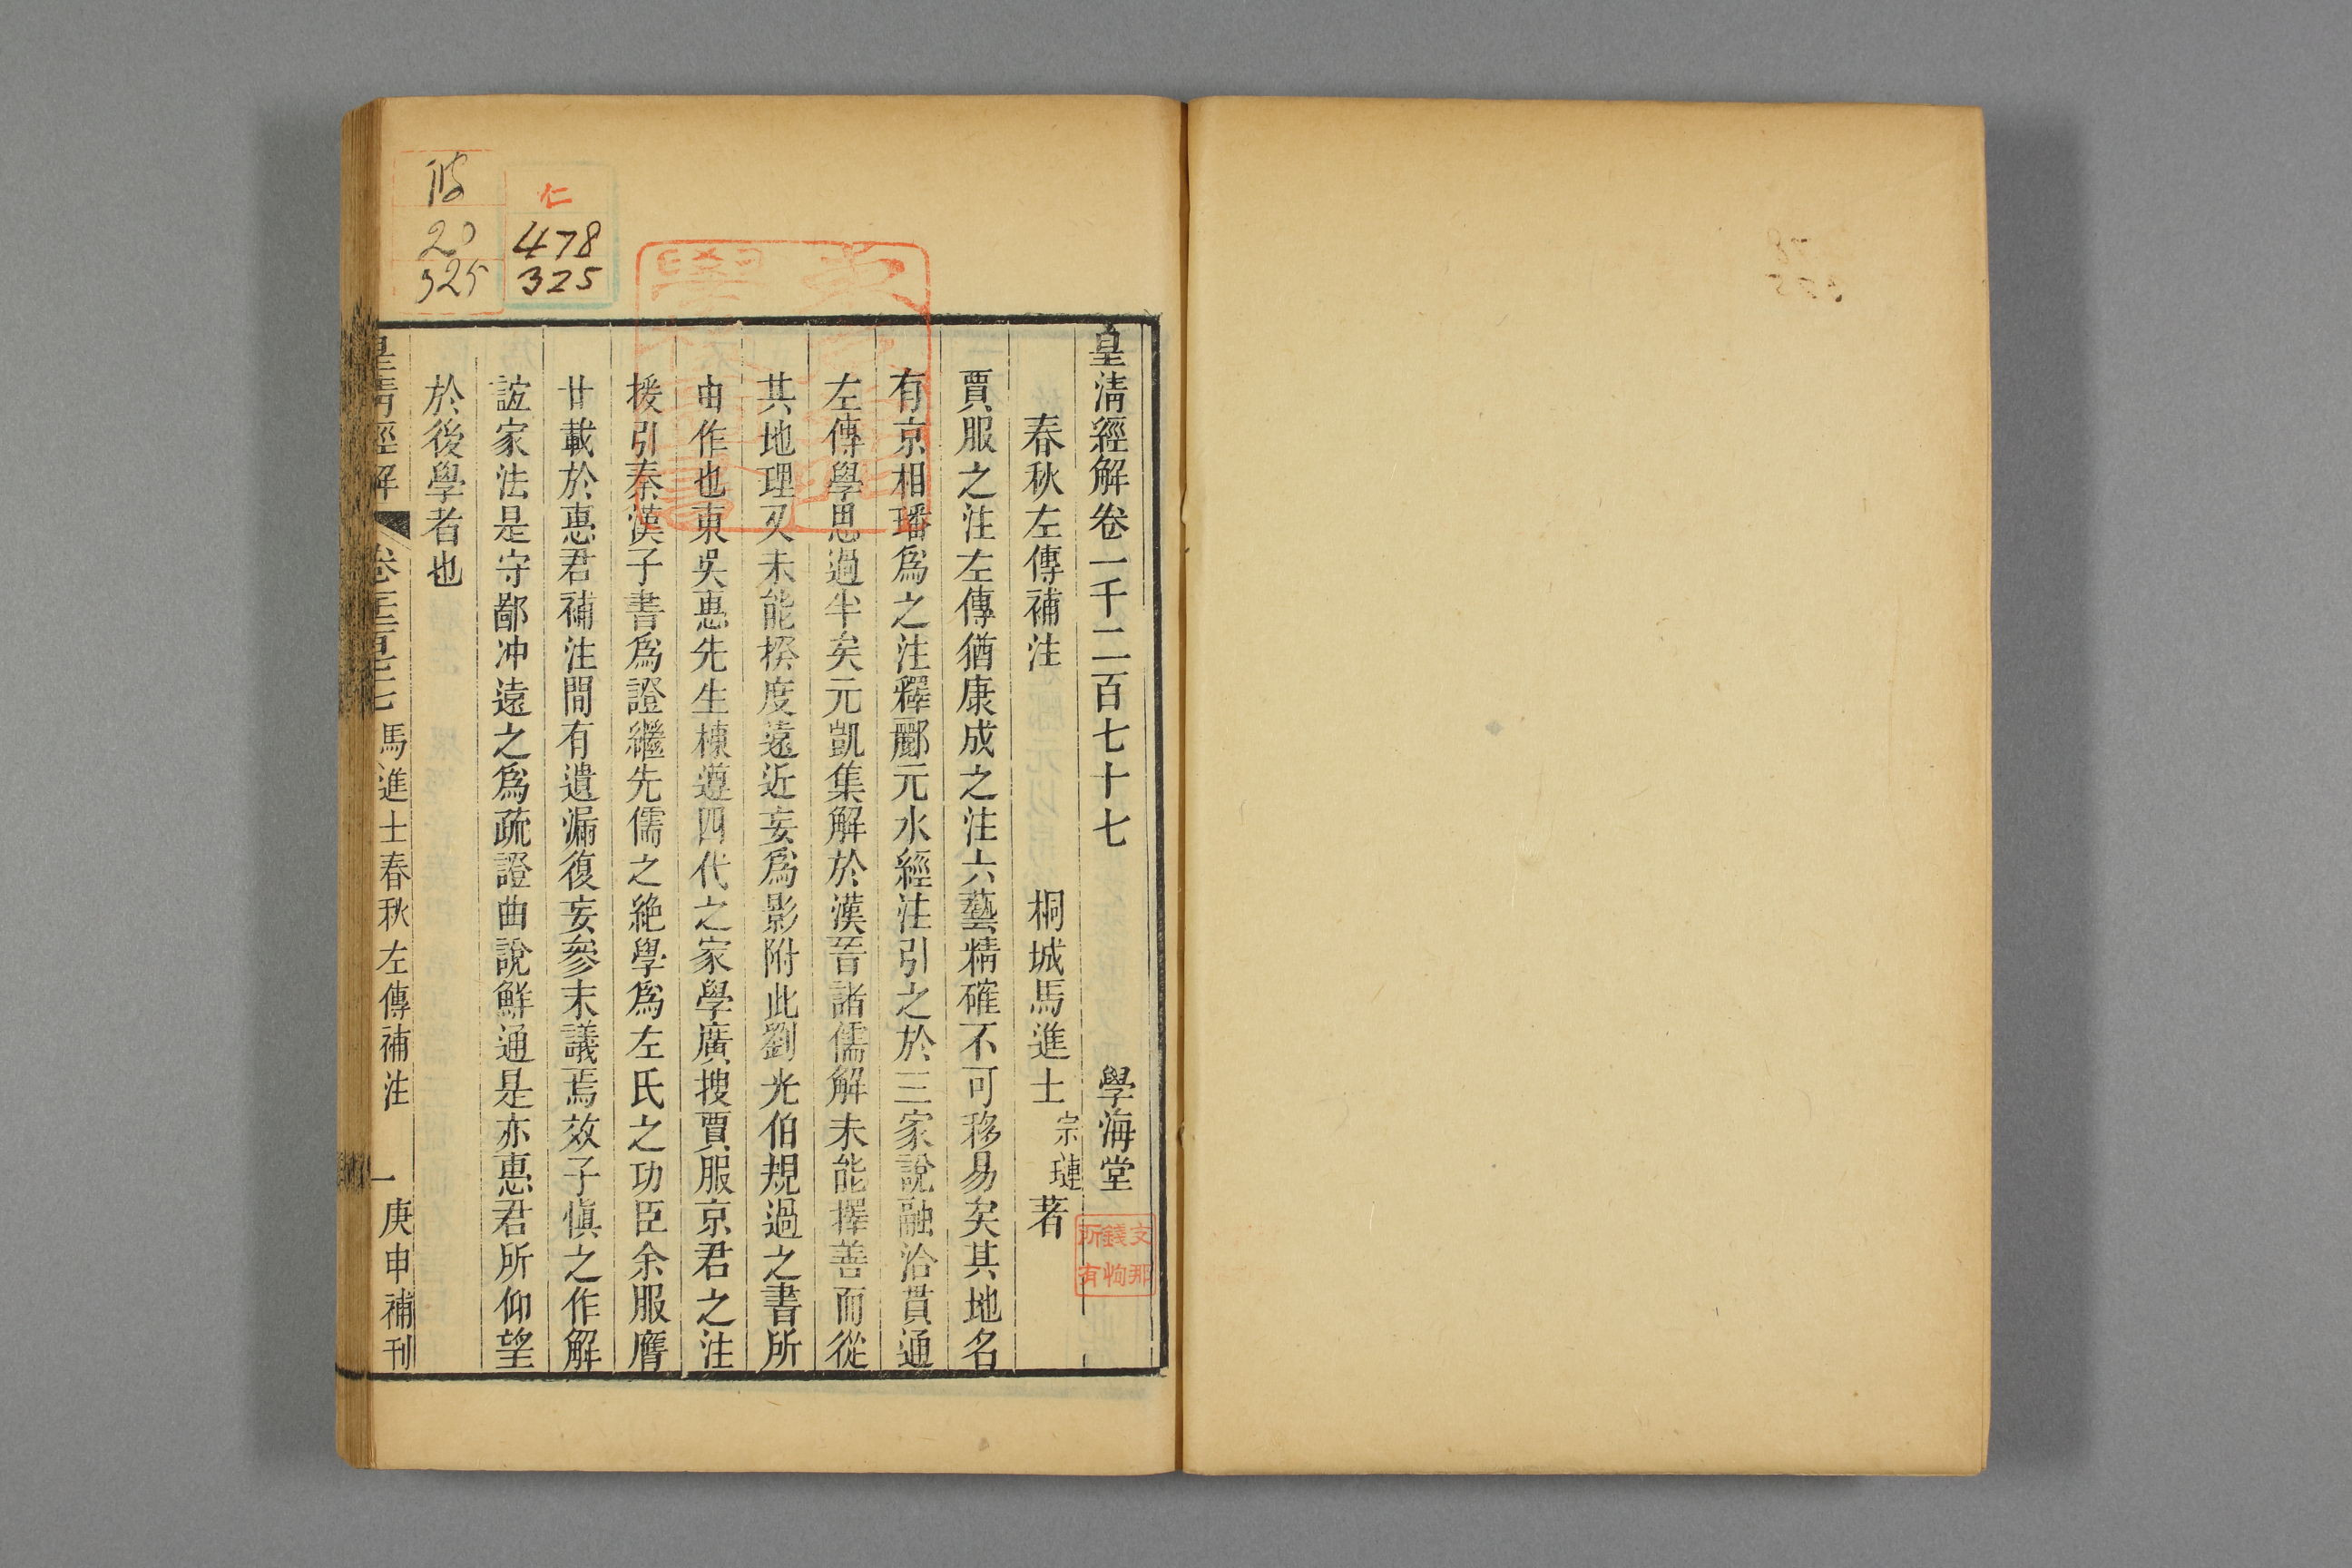 皇清經解卷一千二百七十七　學海堂
春秋左傳補注　桐城馬進士宗璉著
賈服之注左傳猶康成之注六藝精確不可移易矣其地名
有京相璠爲之注釋酈元水經注引之於三家說融洽貫通
左傳學思過半矣元凱集解於漢晉諸儒解未能擇善而從
其地理又未能揆度遠近妄爲影附此劉光伯規過之書所
由作也東吳惠先生棟遵四代之家學廣搜賈服京君之注
援引秦漢子書爲證繼先儒之絶學爲左氏之功臣余服膺
廿載於惠君補注間有遺漏復妄參末議焉效子愼之作解
誼家法是守鄙冲遠之爲疏證曲說鮮通是亦惠君所仰望
於後學者也
皇清經解　卷一千二百七十七　馬進士春秋左傳補注　一　庚申補刊
支那
錢恂
所有
仁
478
325
20
325